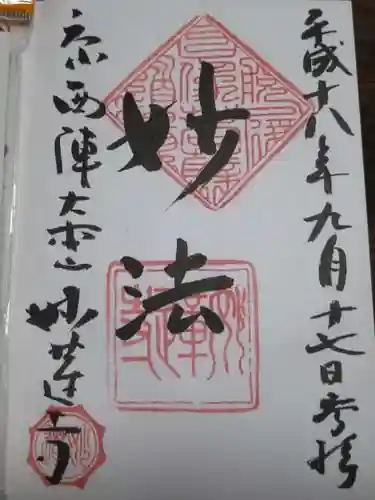 平成十八年九月十七日参拝
妙法
京西陣大本山妙蓮寺